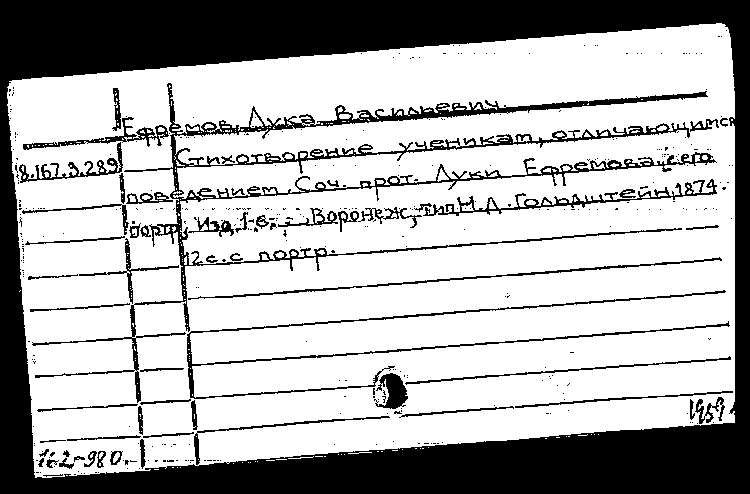 Ефремов, Лука Васильевич.
18.167.3.289 Стихотворение ученикам, отличающимся
поведением. Соч. прот. Луки Ефремова с его
портр. Изд. 1-е. - Воронеж, тип. Н.Д. Гольдштейн, 1874.
12 с. с портр.
1959
162-980.